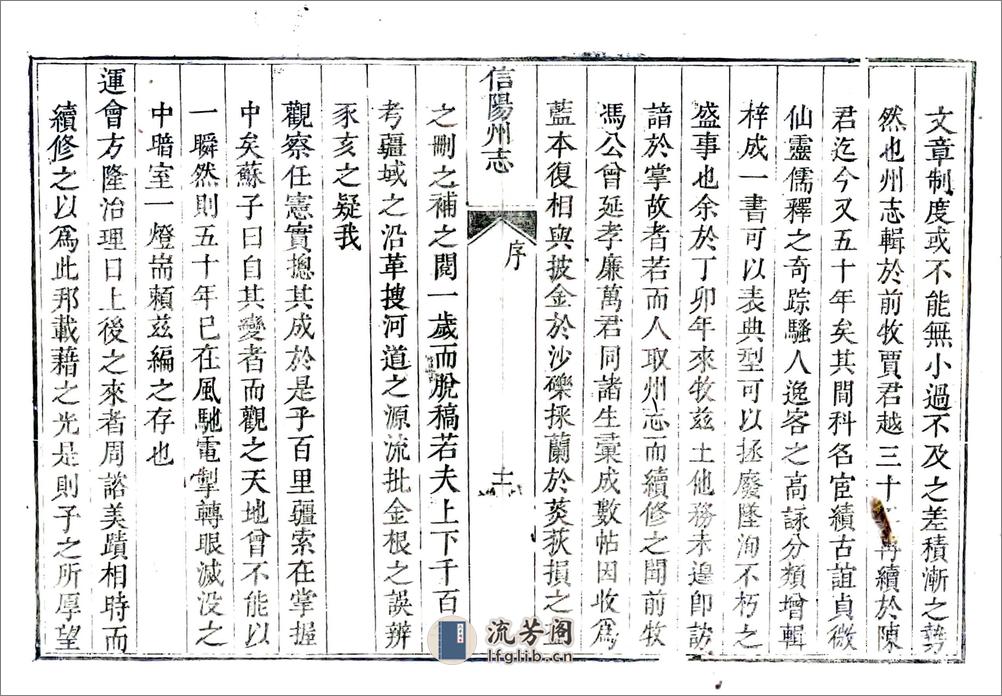 文章制度或不能無小過不及之差積漸之勢
然也州志輯於前牧賈君越三十 再續於陳
君迄今又五十年矣其間科名宦績古誼貞徽
仙靈儒釋之奇踪騷人逸客之高詠分類增輯
梓成一書可以表典型可以拯廢墜洵不朽之
盛事也余於丁卯年來牧兹土他務未遑卽訪
諳於掌故者若而人取州志而續修之聞前牧
馮公曾延孝廉萬君同諸生彙成數帖因收爲
藍本復相與披金於沙礫採蘭於葵荻損之益
信陽州志
序
之刪之補之閱一歲而脫稿若夫上下千百
考疆域之沿革搜河道之源流批金根之誤辨
豕亥之疑我
觀察任憲實摠其成於是乎百里疆索在掌握
中矣蘇子曰自其變者而觀之天地曾不能以
一瞬然則五十年已在風馳電掣轉眼滅没之
中暗室一燈耑賴兹編之存也
運會方隆治理日上後之來者周諮美蹟相時而
續修之以爲此邦載藉之光是則予之所厚望
流芳阁
lfglib.cn